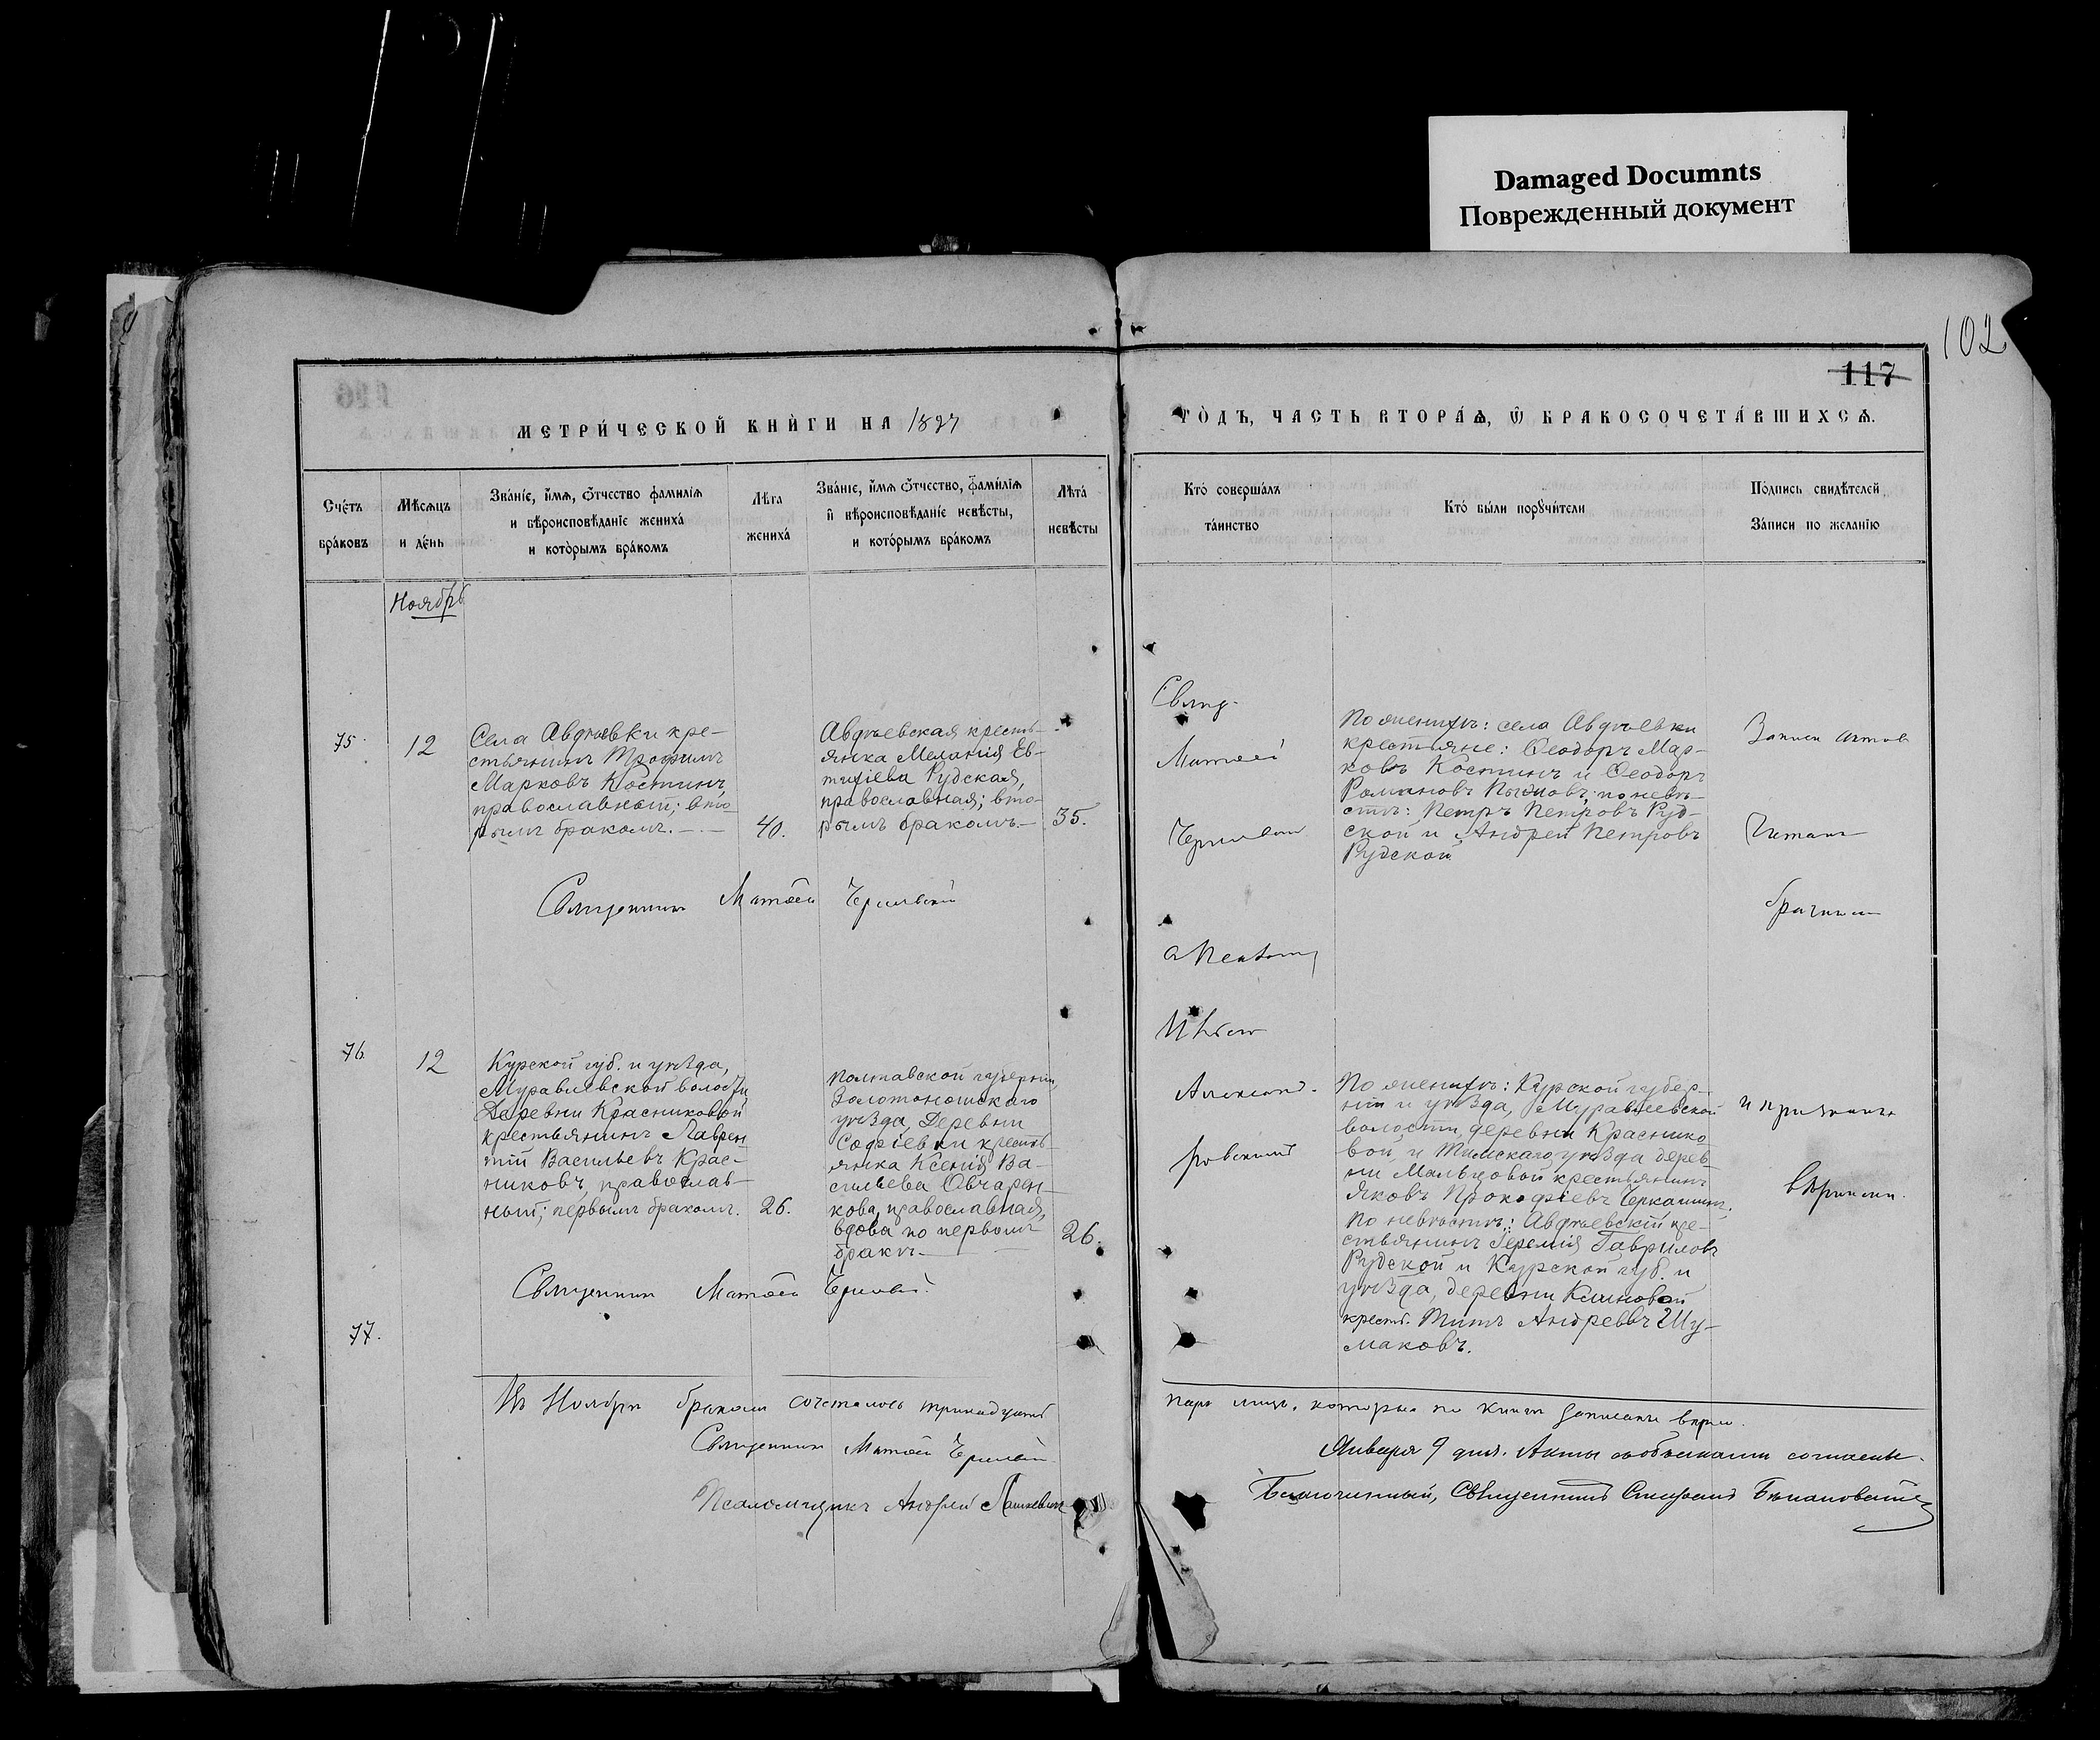 Damaged Documnts
Поврежденный документ
102
117
МЕТРИ́ЧЕСКОЙ КНИ́ГИ НА 1897
ГО́ДЪ, ЧАСТЬ ВТОРА́Ѧ, Ѿ БРАКОСОЧЕТА́ВШИХСѦ.
Сче́тъ
бра́ковъ
Мѣ́сѧцъ
и де́нь
Зва́нїе, и҆́мѧ, ѻ҆́тчество фами́лїѧ
и вѣроисповѣ́данїе жениха́
и кото́рымъ бра́комъ
Лѣ́та
жениха́
Зва́нїе, и҆́мѧ ѻ҆́тчество, фами́лїѧ
и҆ вѣроисповѣ́данїе невѣ́сты,
и кото́рымъ бра́комъ
Лѣта́
невѣ́сты
Кто̀ соверша́лъ
та́инство
Кто̀ бы́ли порꙋчи́тели
По́дпись свидѣ́телей
За́писи по жела́нїю
Ноябрь
75
12
Села Авдѣевки кре-
стьянинъ Трофимъ
Марковъ Костинъ,
православный; вто-
рымъ бракомъ.
40.
Авдѣевская кресть-
янка Меланія Ев-
тихіева Рудская,
православная; вто-
рымъ бракомъ.
35.
Священникъ Матѳей
Свящ.
Матѳей
По женихѣ: села Авдѣевки
крестьяне: Ѳеодоръ Мар-
ковъ Костинъ и Ѳеодоръ
Романовъ по невѣ-
стѣ: Петръ Петровъ Руд-
ской и Андрей Петровъ
Рудской
Записи актов
Читалъ
76
12
Курской губ. и уѣзда,
Муравлевской волости
Деревни Красниковой
крестьянинъ Лаврен-
тій Васильевъ Крас-
никовъ, православ-
ный; первымъ бракомъ.
26.
Полтавской губерніи,
Золотоношскаго
уѣзда, Деревни
Софіевки кресть-
янка Ксенія Ва-
сильева Овчарен-
кова, православная,
вдова по первомъ
бракѣ
26.
Священникъ Матѳей
Александ-
ровский
По женихѣ: Курской губер-
ніи и уѣзда, Муравлевской
волости, деревни Краснико-
вой, и Тимскаго уѣзда дерев-
ни Мальцовой крестьянинъ
Яковъ Прокофіевъ Черкашинъ.
По невѣстѣ: Авдѣевскій кре-
стьянинъ Іеремія Гавриловъ
Рудской и Курской губ. и
уѣзда, деревни Клиновой
крест. Титъ Андреевъ Шу-
маковъ.
77.
Въ Ноябрѣ бракомъ сочеталось тринадцать
паръ лицъ, которые по книгѣ записаны вѣрно.
Священникъ Матѳей
Января 9 дня. Акты съ обысками согласны.
Псаломщикъ Андрей
Благочинный, Священникъ